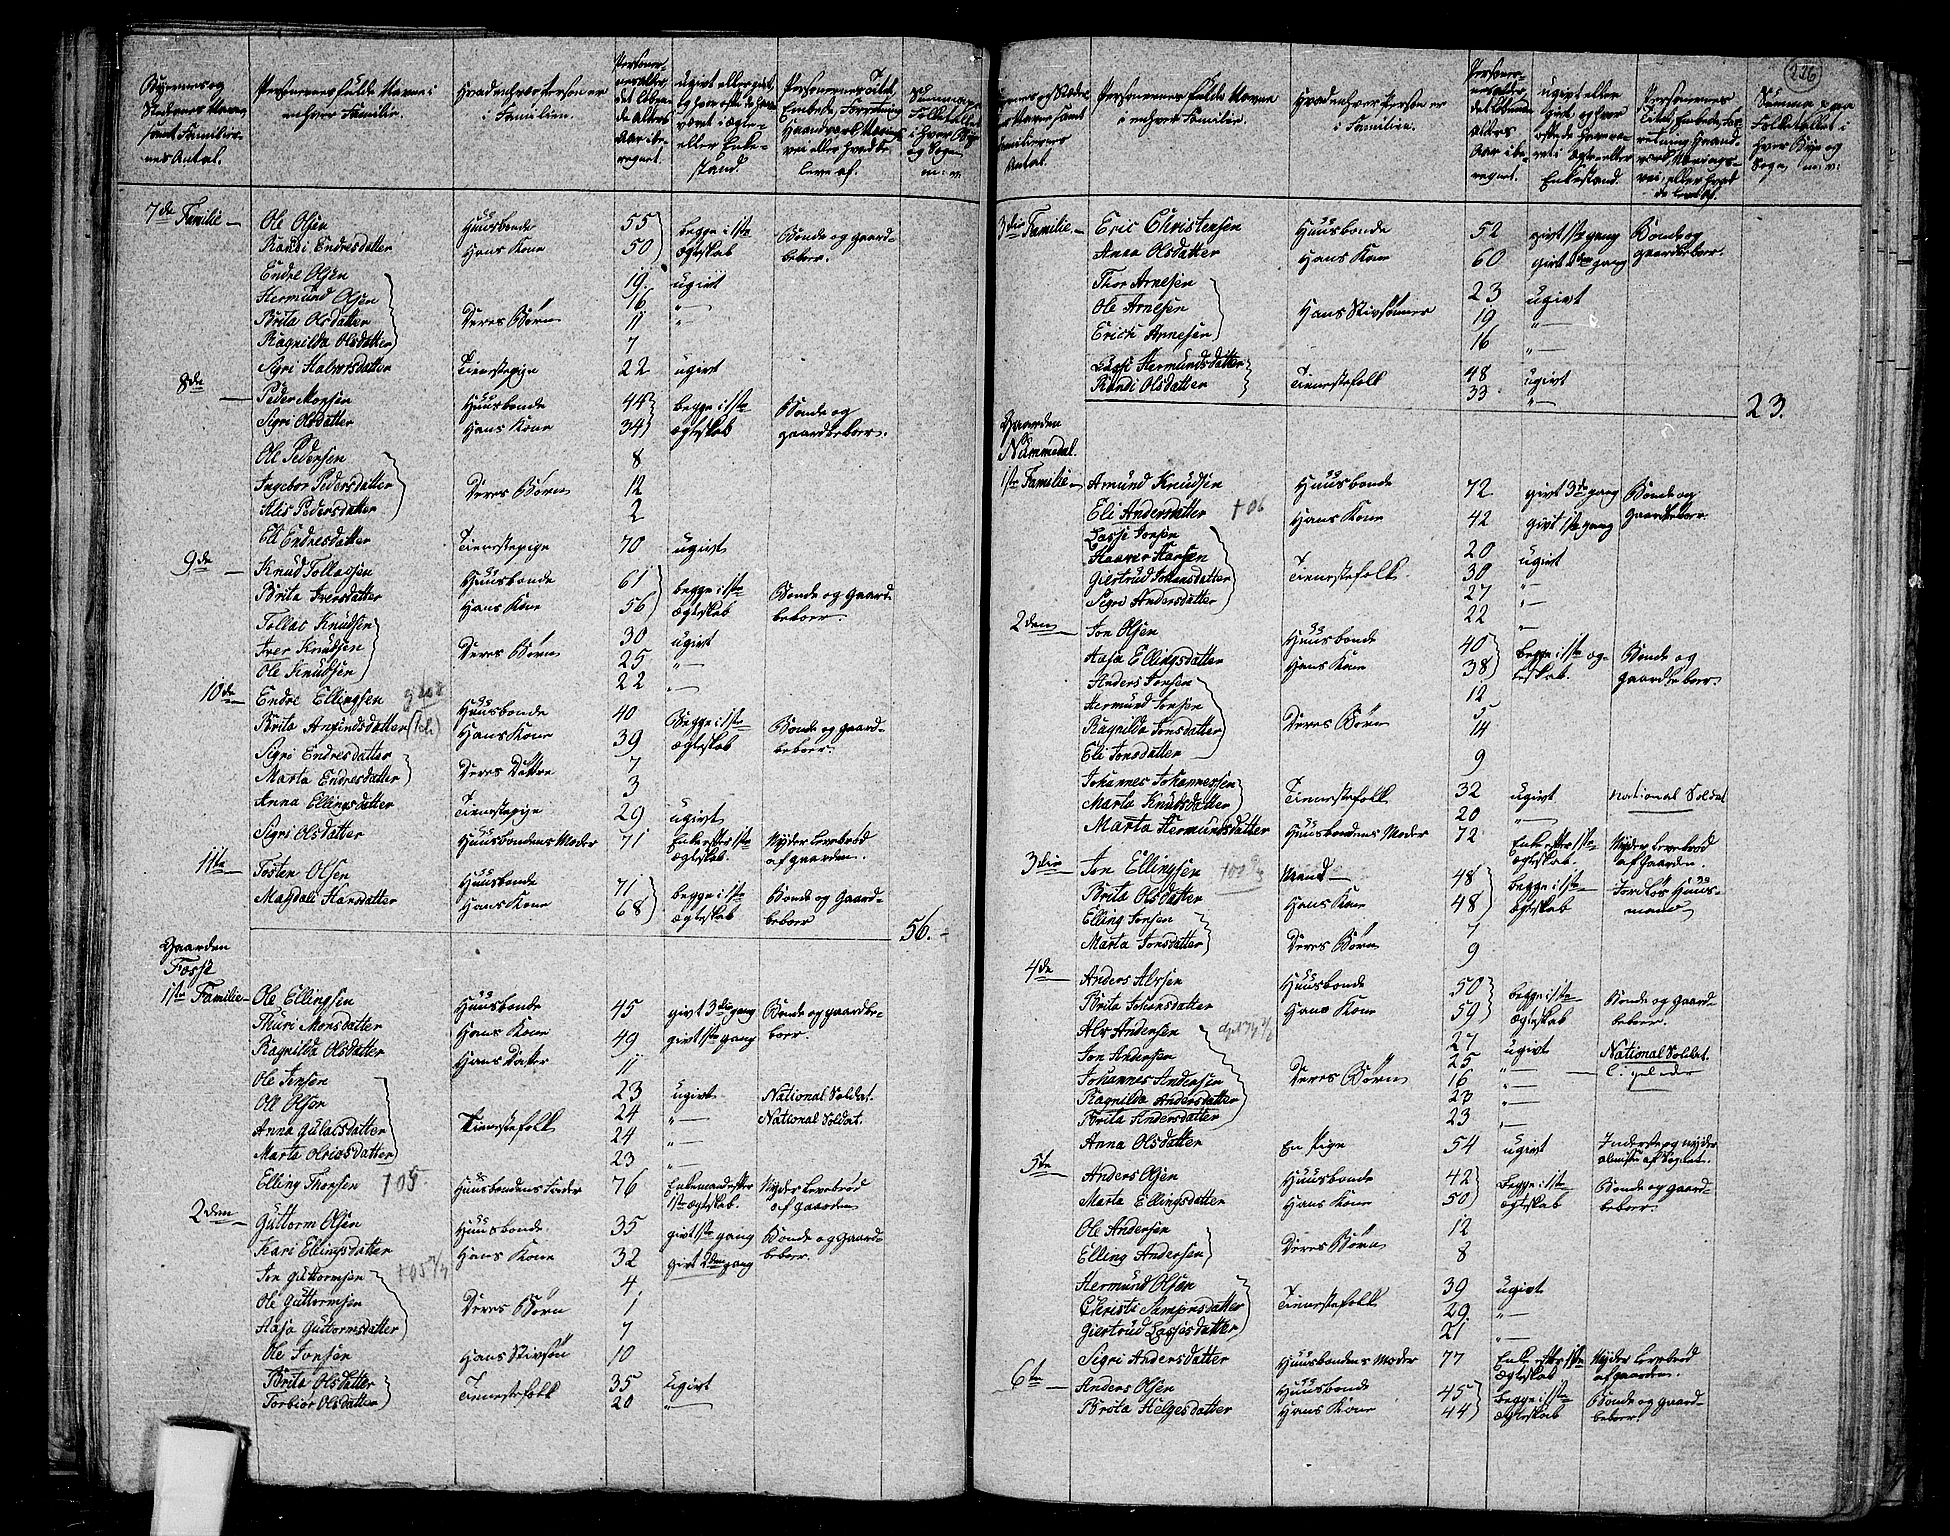 Byernes og
Stedernes Navne
samt Familier-
nes Antal.
Personernes fulde Navne i
enhver Familie.
Hvad enhver Person er
i Familien.
Ugivt eller givt,
Summa paa
Folketallet
i hver Bye
og Sogn
m: v:
7de Familie — Ole Olsen Huusbonde 55 begge i 1ste Bonde og Gaard-
Randi Endresdatter Hans Kone 50 Ægteskab beboer.
Endre Olsen 19 ugivt
Hermund Olsen 16 "
Brita Olsdatter Deres Børn 11 "
Ragnilda Olsdatter 7
Sigri Halvorsdatter Tienestepige 22 ugivt
8de — Peder Monsen Huusbonde 44 begge i 1ste Bonde og
Sigri Olsdatter Hans Kone 34 Ægteskab gaardbeboer.
Ole Pedersen 8
Ingebor Pedersdatter Deres Børn 12
Alis Pedersdatter 2
Eli Endresdatter Tienestepige 70 ugivt
9de — Knud Tollassen Huusbonde 61 begge i 1ste Bonde og Gaard-
Brita Iversdatter Hans Kone 56 Ægteskab beboer.
Tollac Knudsen 30 ugivt
Iver Knudsen Deres Børn 25 "—
Ole Knudsen 22 "—
10de — Endre Ellingsen Huusbonde 40 Begge i 1ste Bonde og gaard-
Brita Anfindsdatter Hans Kone 39 Ægteskab beboer.
Sigri Endresdatter 7
Marta Endresdatter Deres Døttre 3
Anna Ellingsdatter Tienestepige 29 ugivt
Sigri Olsdatter Huusbondens Moder 71 Enke efter 1ste Nyder Levebrød
Ægteskab. af gaarden.
11te — Tosten Olsen Huusbonde 71 begge i 1ste Bonde og Gaard-
Magdali Hansdatter Hans Kone 68 Ægteskab beboer
56.
Gaarden
Fosse
1ste Familie — Ole Ellingsen Huusbonde 45 givt 3die gang Bonde og gaardbe-
Thuri Monsdatter Hans Kone 49 givt 1ste gang boer.
Ragnilda Olsdatter Hans Datter 11
Ole Jensen 23 ugivt National Soldat.
Ole Olsen 24 "— National Soldat.
Anna Gulacsdatter Tienestefolk 24 "—
Marta Olriasdatter 23 "—
Elling Thorsen † 05 Huusbondens Fader 76 Enkemand efter Nyder Levebrød
1ste Ægteskab. af gaarden
2den — Guttorm Olsen Huusbonde 35 givt 1ste gang Bonde og Gaard-
Kari Ellingsdatter Hans Kone 32 givt 2den gang beboer.
Jon Guttormsen 4
Ole Guttormsen Deres Børn 1
Aasa Guttormsdatter 7
Ole Jonsen Hans Stivsøn 10
Brita Olsdatter Tienestefolk 35 ugivt
Torbior Olsdatter 20 "—
216
Personernes fulde Navne
i enhver Familie.
Hvad enhver Person er
i Familien.
Summa paa
Folketallet i
hver Bye og
Sogn, m: v:
3die Familie — Eric Christensen Huusbonde 52 givt 1ste gang Bonde og
Anna Olsdatter Hans Kone 60 givt 2den gang gaardbeboer.
Thor Arnesen 23 ugivt
Ole Arnesen Hans Stivsønner 19 "—
Erich Arnesen 16 "—
Lassi Hermundsdatter 48 ugivt
Randi Olsdatter Tienestefolk 33 "—
23.
Gaarden
Nummedal.
1ste Familie — Amund Knudsen Huusbonde 72 givt 3de gang Bonde og
Eli Andersdatter † 06 Hans Kone 42 givt 1ste gang Gaardbeboer.
Lasse Jonsen 20 ugivt
Haaver Hansen 30 "
Giertrud Johansdatter Tienestefolk 27 "—
Sigri Andersdatter 22 "—
2den — Jon Olsen Huusbonde 40 begge i 1ste Æg- Bonde og
Aasa Ellingsdatter Hans Kone 38 teskab. Gaardbeboer.
Anders Jonsen 12
Hermund Jonsen 5
Ragnilda Jonsdatter Deres Børn 14
Eli Jonsdatter 9
Johannes Johannessen 32 ugivt National Soldat
Marta Knudsdatter Tienestefolk 20 "—
Marta Hermundsdatter Huusbondens Moder 72 Enke efter 1ste Nyder Levebrød
Ægteskab. af Gaarden.
3die — Jon Ellingsen Mand — 48 begge i 1ste Jordløs Huus-
Brita Olsdatter Hans Kone 48 Ægteskab mand
Elling Jonsen 7
Marta Jonsdatter Deres Børn 9
4de — Anders Alvsen Huusbonde 50 begge i 1ste Bonde og Gaard-
Brita Johansdatter Hans Kone 59 Ægteskab beboer.
Alv Andersen 27 ugivt National Soldat.
Jon Andersen 25 "— Ligeledes
Johannes Andersen Deres Børn 16 "—
Ragnilda Andersdatter 23 "—
Brita Andersdatter 23 "—
Anna Olsdatter En Pige 54 ugivt Inderste og nyder
almisse af Sognet.
5te — Anders Olsen Huusbonde 42 begge i 1ste Bonde og gaard-
Marta Ellingsdatter Hans Kone 50 Ægteskab beboer.
Ole Andersen 12
Elling Andersen Deres Børn 8
Hermund Olsen 39 ugivt
Christi Samsonsdatter Tienestefolk 29 "—
Giertrud Lassesdatter 21 "—
Sigri Andersdatter Huusbondens Moder 77 Enke efter 1ste Nyder Levebrød
Ægteskab af gaarden.
6te — Anders Olsen Huusbonde 45 begge i 1ste Bonde og gaard-
Brita Helgesdatter Hans Kone 44 Ægteskab beboer